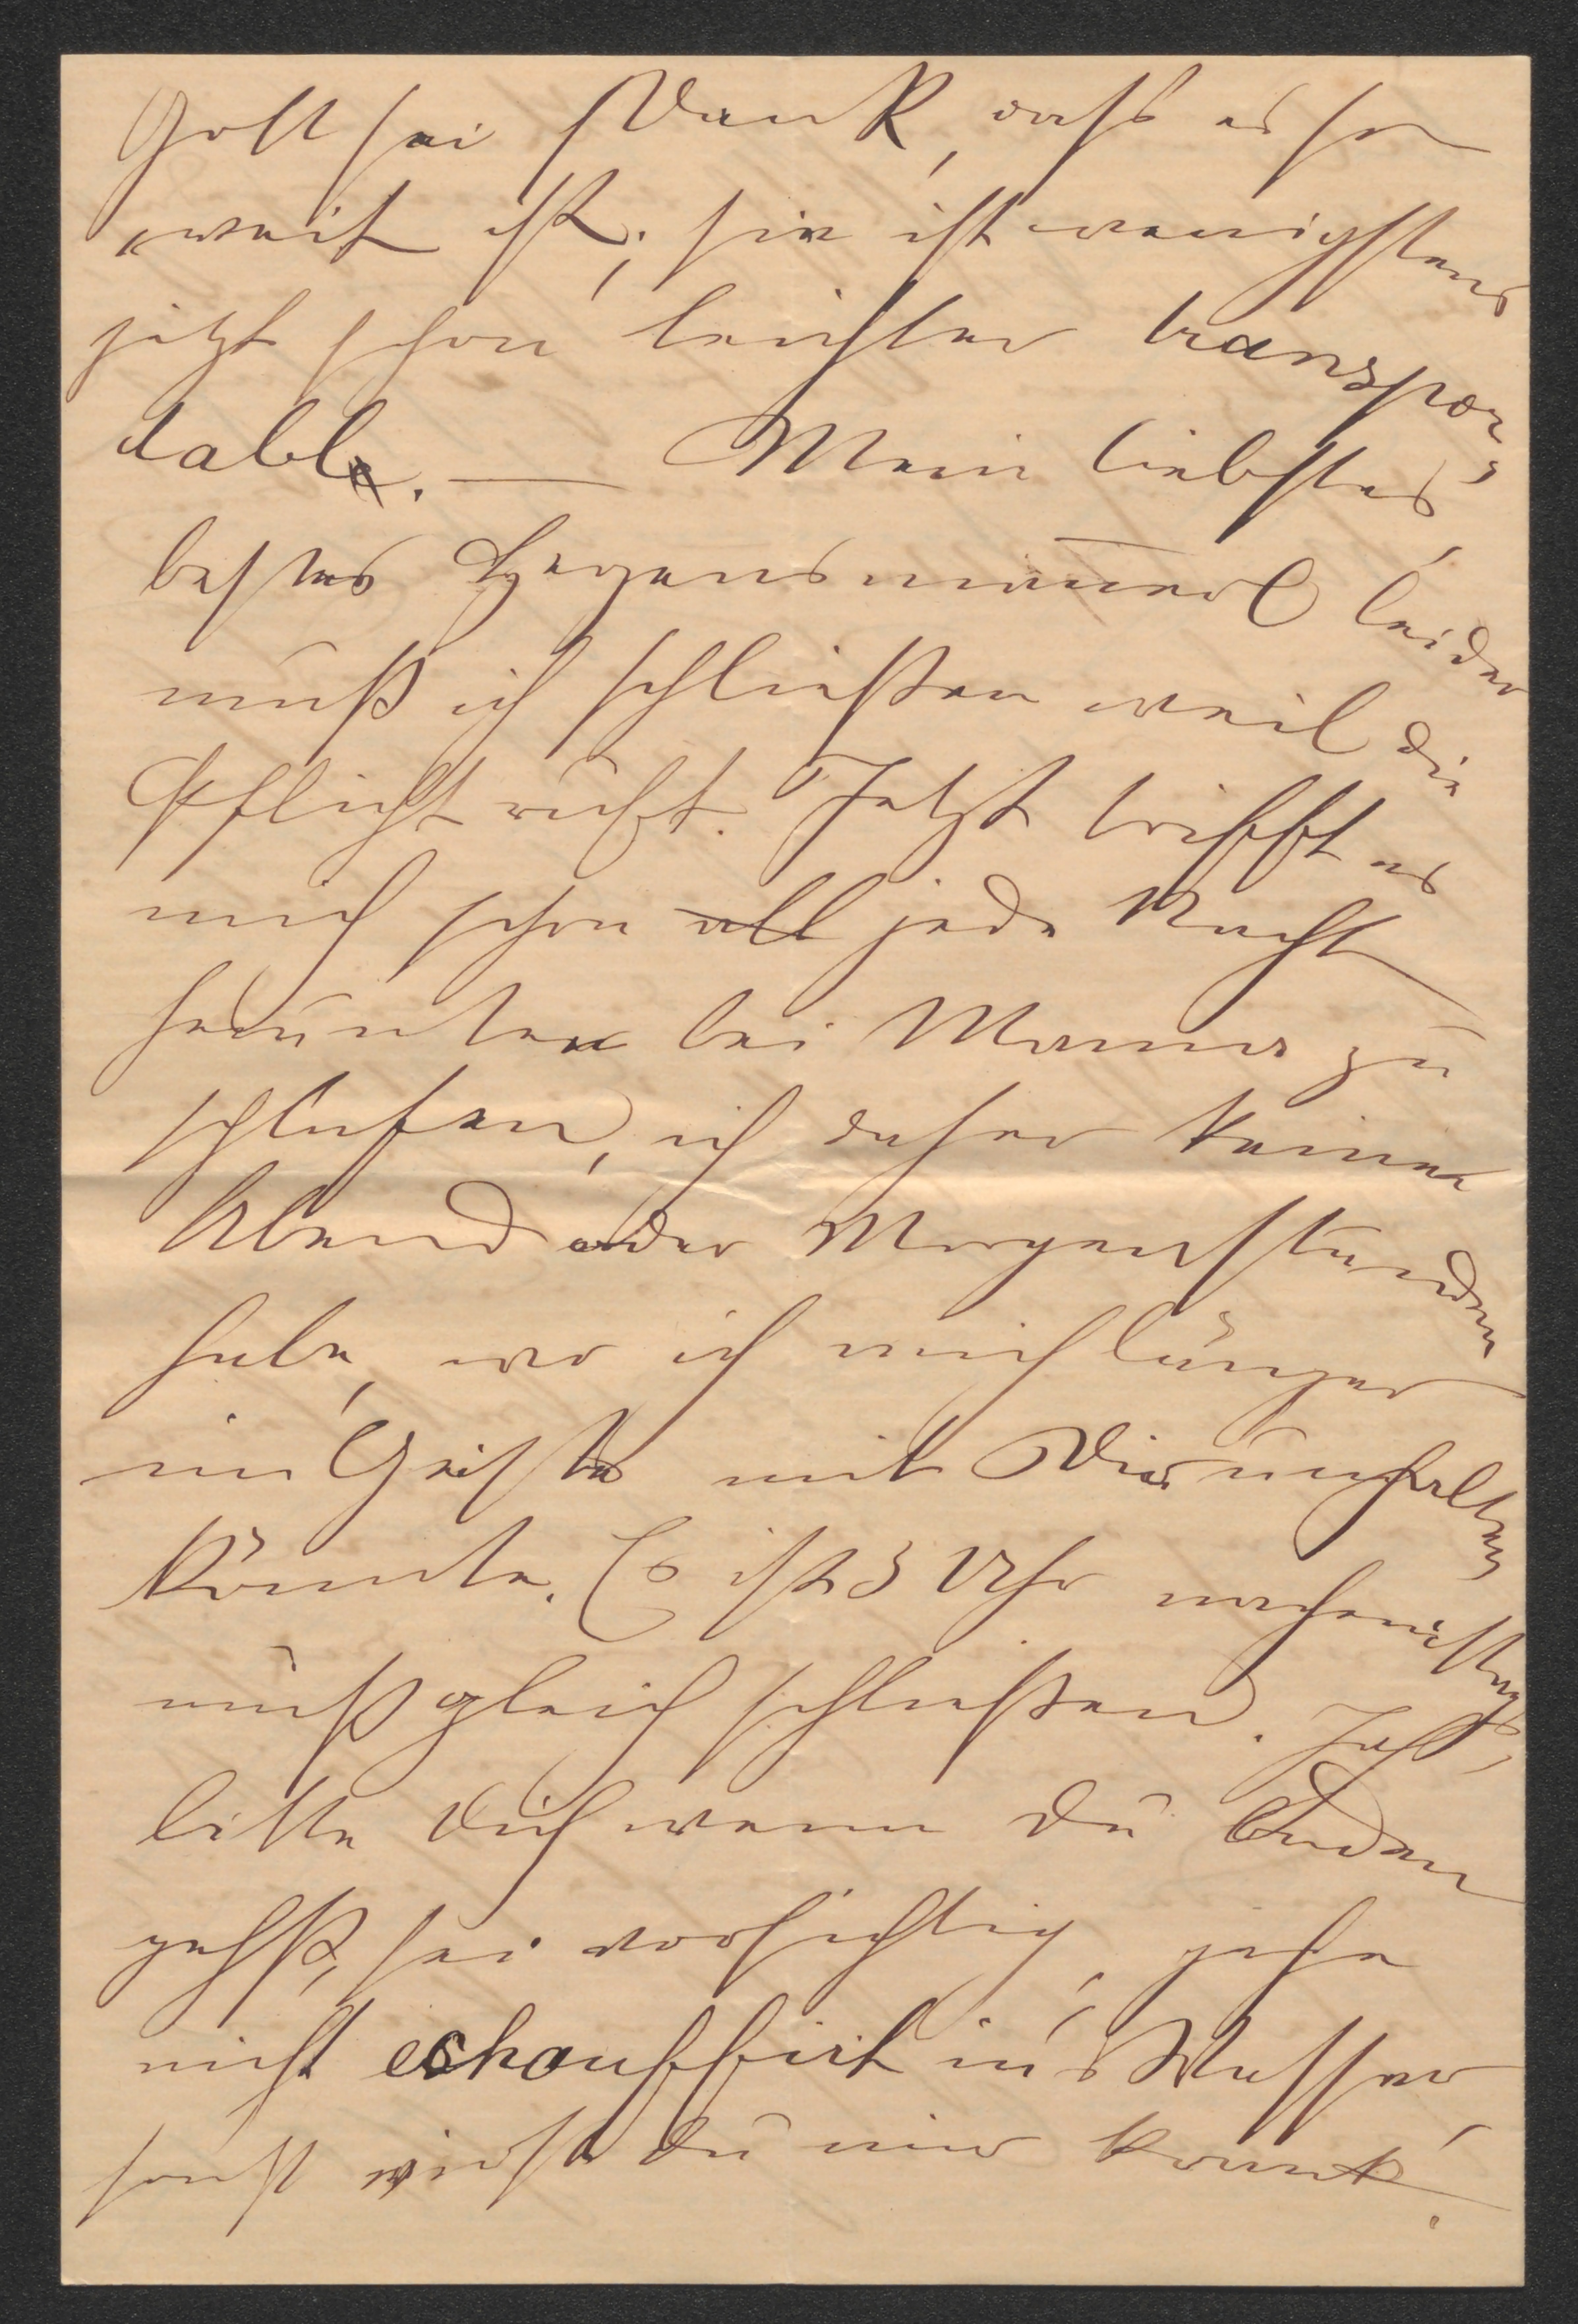 Gott sei Dank, daß es so
weit ist; sie ist wenigstens
jetzt schon leichter transpor-
dabl. — Mein liebstes,
bestes Herzensmannerl leider
muß ich schließen weil die
Pflicht ruft. Jetzt trifft es
mich schon all jede Nacht
herunten bei Mama zu
schlafen, ich daher keine
Abend oder Morgenstunden
habe, wo ich mich länger
im Geiste mit Dir unterhalten
könnte. Es ist 3 Uhr nachmittags,
muß gleich schließen. Ich
bitte Dich wenn du baden
gehst, sei vorsichtig, gehe
nicht echauffirt in's Wasser
sonst wirst du mir krank!